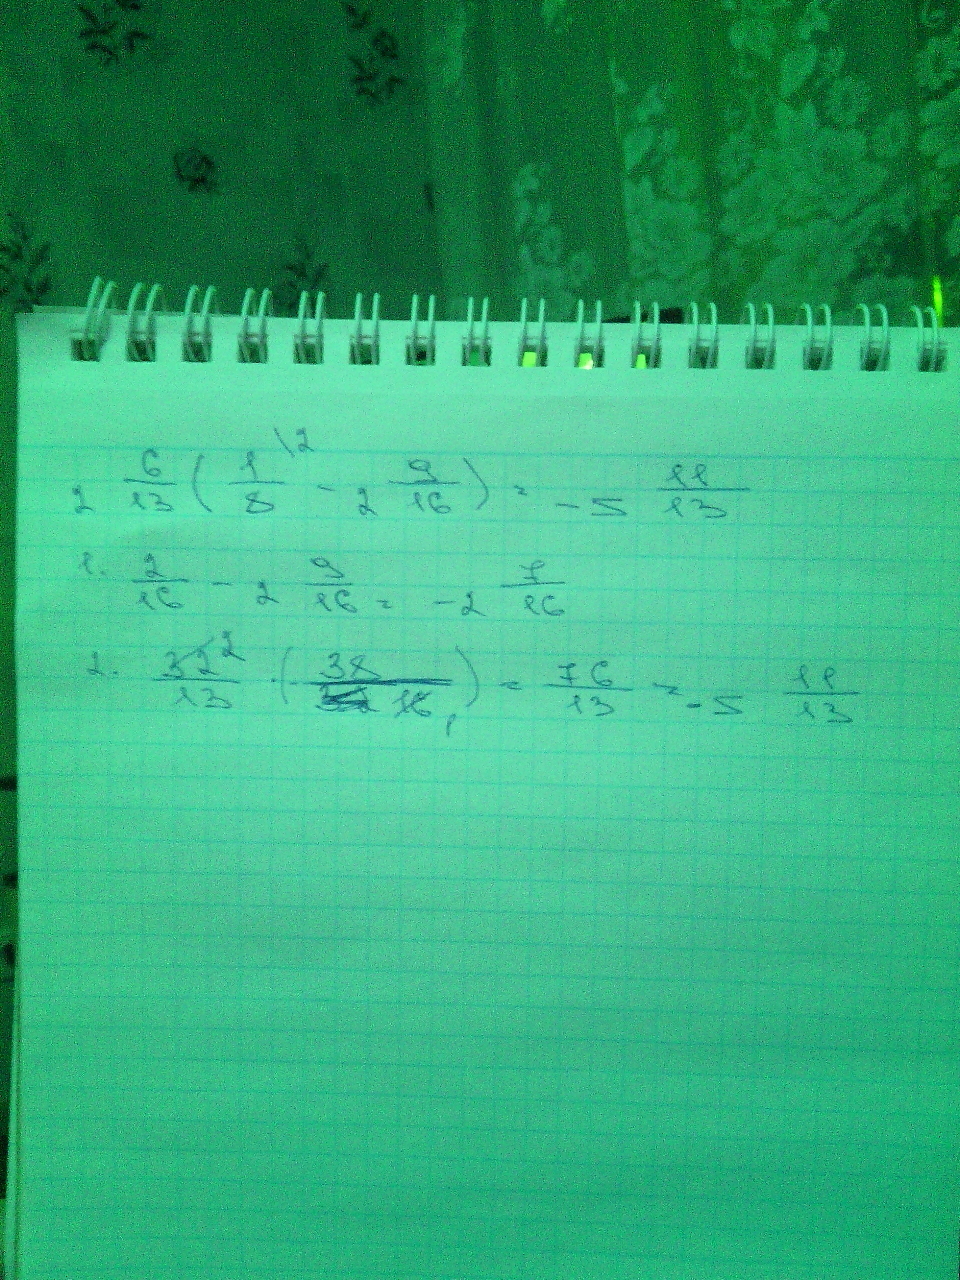 2 6/13 ( 1/8 \2 - 2 9/16 ) = -5 11/13
1. 2/16 - 2 9/16 = -2 7/16
2. 32 2/13 · ( 38/16 1 ) = 76/13 = -5 11/13